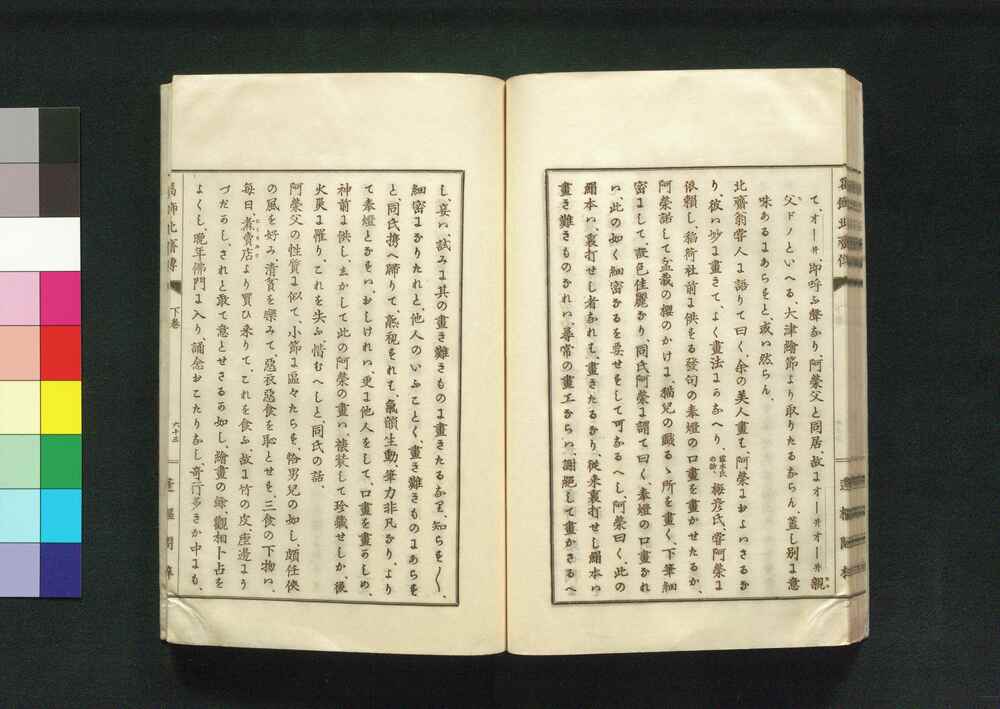 葛飾北齋傳
て、オーヰ、即呼ふ聲なり、阿榮父と同居、故にオーヰオーヰ親
父ドノといへる、大津繪節より取りたるならん、蓋し別に意
味あるにあらすと、或ハ然らん、
北齋翁甞人に語りて曰く、余の美人畫ハ、阿榮におよハさるな
り、彼ハ妙に畫きて、よく畫法にかなへり、露木氏の話、梅彦氏、甞阿榮に
依頼し、稻荷社前に供する發句の奉燈の口畫を畫かせたるか、
阿榮諾して盆栽の櫻のかけに、猫兒の戯るゝ所を畫く、下筆細
密にして、設色佳麗なり、同氏阿榮に謂て曰く、奉燈の口畫なれ
ハ、此の如く細密なるを要せすして可なるへし、阿榮曰く、此の
絹本ハ、裏打せし者なれは、畫きたるなり、從来裏打せし絹本ハ
畫き難きものなれハ、尋常の畫工ならハ、謝絶して畫かさるへ
し、妾ハ、試みに其の畫き難きものに畫きたるなり、知らす〳〵、
細密になりたれと、他人のいふことく、畫き難きものにあらす
と、同氏携へ歸りて、熟視すれは、氣韻生動、筆力非凡なり、より
て奉燈となすハ、おしけれハ、更に他人をして、口畫を畫かしめ、
神前に供し、しかして此の阿榮の畫ハ、裱装して珍藏せしか、後
火災に罹り、これを失ふ、惜むへしと、同氏の話、
阿榮父の性質に似て、小節に區々たらす、恰男兒の如し、頗任俠
の風を好み、清貧を樂みて、惡衣惡食を恥とせす、三食の下物ハ、
毎日、煮賣店より買ひ来りて、これを食ふ、故に竹の皮、座邊にう
つたかし、されと敢て意とせさるか如し、繪畫の餘、觀相卜占を
よくし、晩年佛門に入り、誦念おこたりなし、奇行多きか中にも、
葛飾北齋傳
下卷
六十三